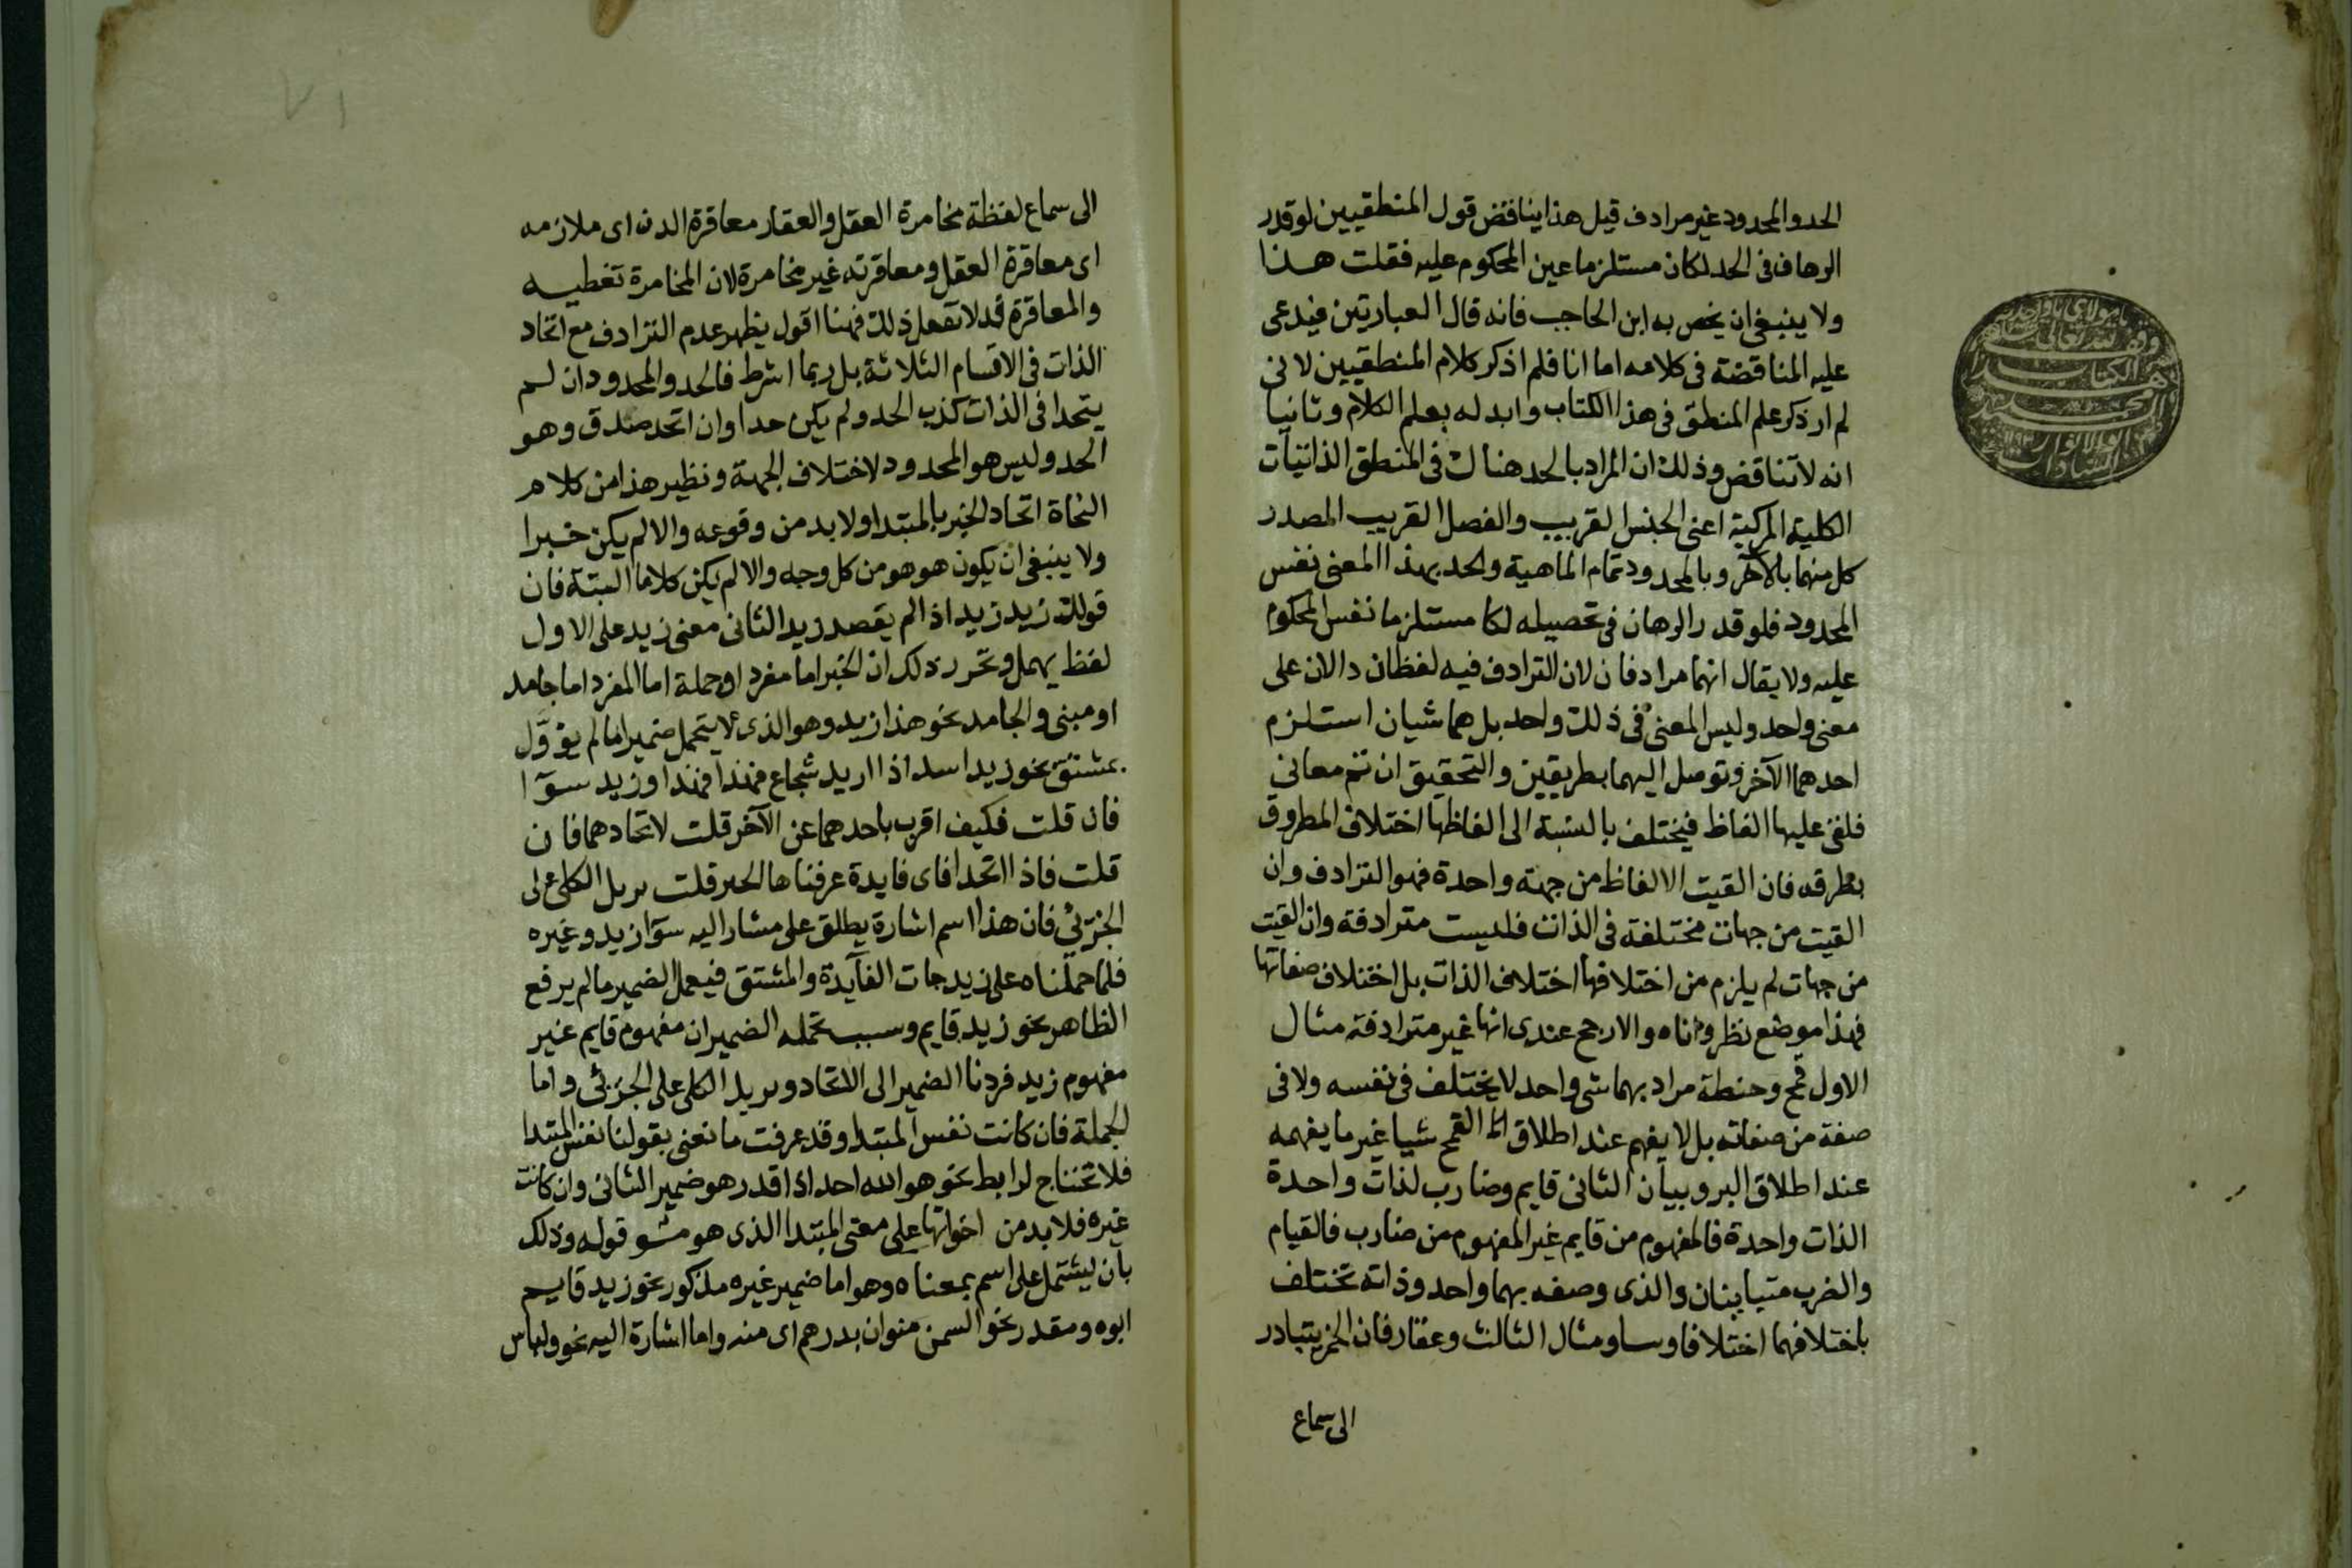 الحد والمحدود غير مرادف قيل هذا يناقض قول المنطقيين لو قدر
الرهاف فى الحد لكان مستلزما عين المحكوم عليه فقلت هذا
ولا ينبغى ان يخص به ابن الحاجب فانه قال العبارتين فيدعى
عليه المناقضة فى كلامه اما انا فلم اذكر كلام المنطقيين لانى
لم ار ذكر علم المنطق فى هذا الكتاب وابدله بعلم الكلام وثانيا
انه لا تناقض وذلك ان المراد بالحد هناك فى المنطق الذاتيات
الكلية المركبة اعنى الجنس القريب والفصل القريب المصدر
كل منهما بالآخر وبالمحدود تمام الماهية والحد بهذا المعنى نفس
المحدود فلو قدر الرهان فى تحصيله لكا مستلزما نفس المحكوم
عليه ولا يقال انهما مرادفان لان الترادف فيه لفظان دالان على
معنى واحد وليس المعنى فى ذلك واحد بل هما شيان استلزم
احدهما الآخر وتوصل اليهما بطريقين والتحقيق ان ثم معانى
فلقى عليها الفاظ فيختلف بالنسبة الى الفاظها اختلاف المطروق
بطرقه فان القيت الالفاظ من جهة واحدة فهو الترادف وان
القيت من جهات مختلفة فى الذات فليست مترادفة وان القيت
من جهات لم يلزم من اختلافها اختلاف الذات بل اختلاف صفاتها
فهذا موضع نظر واناه والارجح عندى انها غير مترادفة مثال
الاول قمح وحنطة مراد بهما شى واحد لا يختلف فى نفسه ولا فى
صفة من صفاته بل لا يفهم عند اطلاق القمح شيا غير ما يفهمه
عند اطلاق البر وبيان الثانى قايم وضارب لذات واحدة
الذات واحدة فالمفهوم من قايم غير المفهوم من ضارب فالقيام
والضرب متباينان والذى وصفه بهما واحد وذاته تختلف
باختلافهما اختلافا وسا ومثال الثالث وعقار فان الخمر يتبادر
الى سماع
الى سماع لفظة مخامرة العقل والعقار معاقرة الدن اى ملازمه
اى معاقرة العقل ومعاقرته غير مخامرة لان المخامرة تغطيه
والمعاقرة قد لا تفعل ذلك فهنا اقول يظهر عدم الترادف مع اتحاد
الذات فى الاقسام الثلاثة بل ربما اشرط فالحد والمحدود ان لم
يتحدا فى الذات كذب الحد ولم يكن حدا وان اتحد صدق وهو
الحد وليس هو المحدود لاختلاف الجهة ونظير هذا من كلام
النحاة اتحاد الخبر بالمبتدا ولا بد من وقوعه والا لم يكن خبرا
ولا ينبغى ان يكون هو هو من كل وجه والا لم يكن كلاما البتة فان
قولك زيد زيد اذا لم يقصد زيد الثانى معنى زيد على الاول
لفظ يهمل وتحرر ذلك ان الخبر اما مفرد او جملة اما المفرد اما جامد
او مبنى والجامد نحو هذا زيد وهو الذى لا يتحمل ضميرا ما لم يؤول
بمشتق نحو زيد اسد اذا اريد شجاع فهذا فهذا وزيد سوآ
فان قلت فكيف اقرب باحدهما عن الآخر قلت لاتحادهما فان
قلت فاذا اتحدا فاى فايدة عرفناها الخبر قلت بريل الكلى على
الجزئى فان هذا اسم اشارة يطلق على مشار اليه سوآ زيد وغيره
فلما حملناه على زيد جات الفآيدة والمشتق فيعمل الضمير ما لم يرفع
الظاهر نحو زيد قايم وسبب تحمله الضمير ان مفهوم قايم غير
مفهوم زيد فردنا الضمير الى الاتحاد وبريل الكلى على الجزئى واما
الجملة فان كانت نفس المبتدا وقد عرفت ما نعنى بقولنا نفس المبتدا
فلا تحتاج لرابط نحو هو الله احد اذا قدر هو ضمير الثانى وان كانت
غيره فلا بد من اخواتها على معنى المبتدا الذى هو مشو قوله وذلك
بان يشتمل على اسم بمعناه وهو اما ضمير غيره مذكور نحو زيد قايم
ابوه ومقدر نحو السمن منوان بدرهم اى منه واما اشارة اليه نحو ولباس
٧١